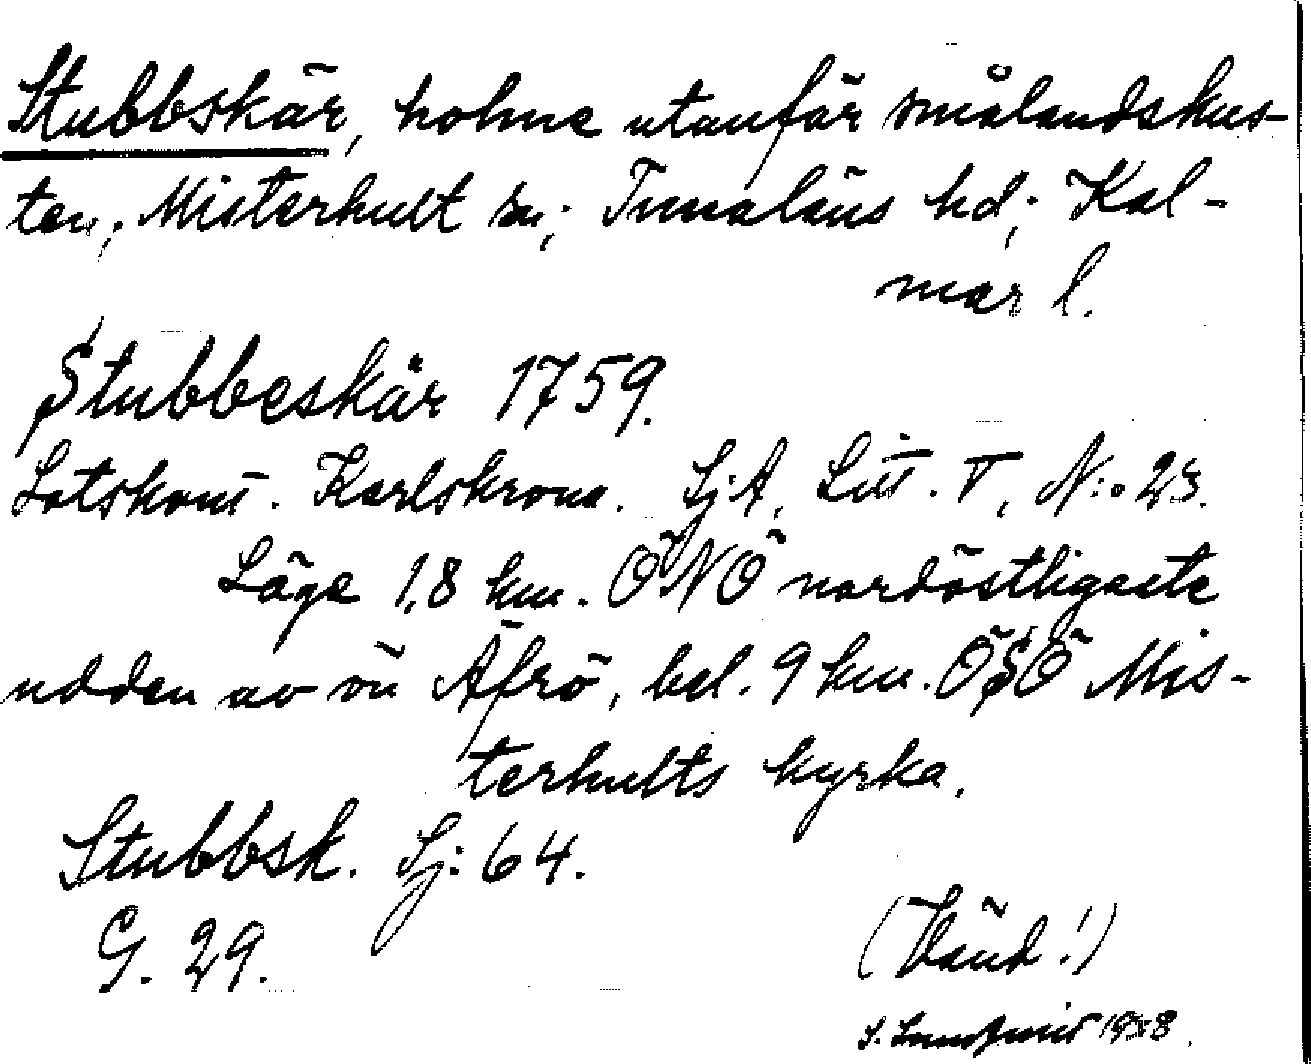 Stubbskär, holme utanför smålandskus-
ten; Misterhult sn; Tunaläns hd; Kal-
mar l.
Stubbeskär 1759.
Lotskont. Karlskrona. SjA, Litt. T, N:o 23.
Läge 1,8 km. ÖNÖ nordöstligaste
udden av ön Äfrö, bel. 9 km. ÖSÖ Mis-
terhults kyrka.
Stubbsk. Sj: 64.
G. 29.
(Vänd!)
S. 1938.